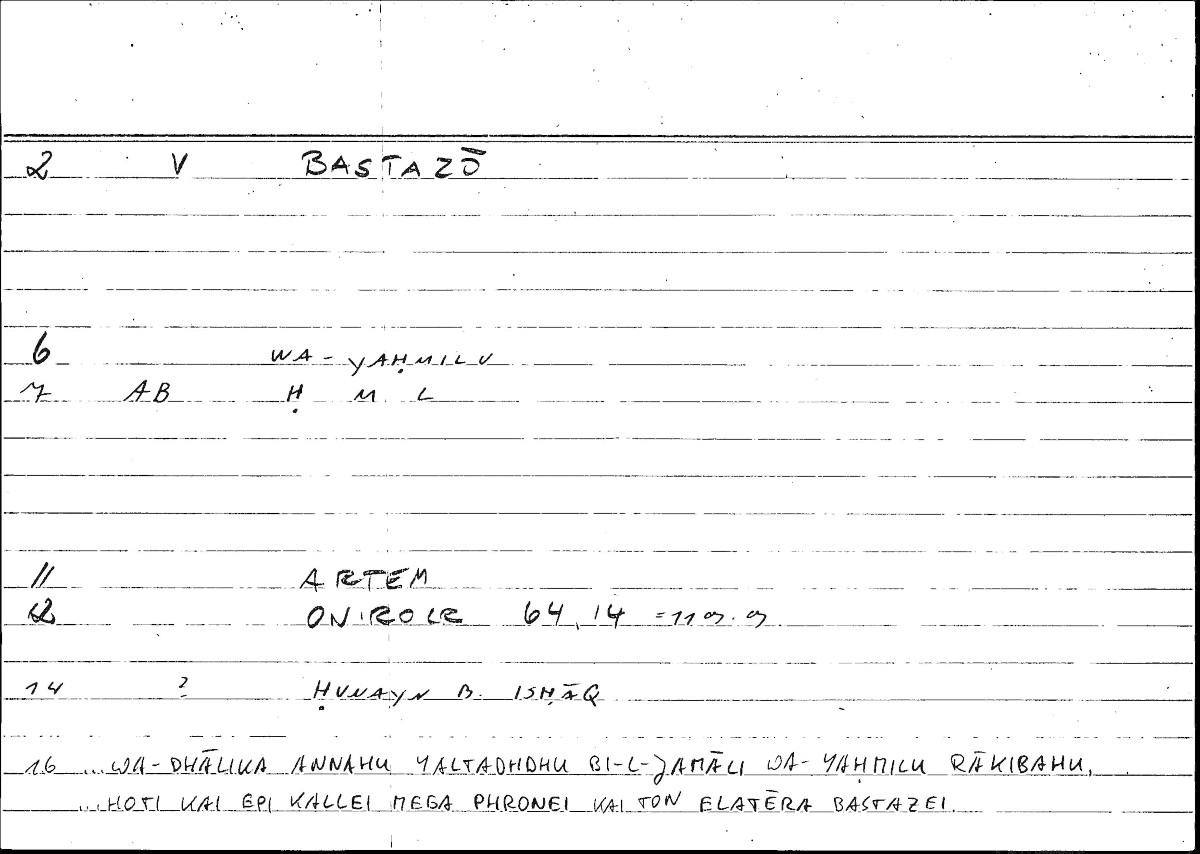 2 V BASTAZŌ
6 WA-YAḤMILU
7 AB Ḥ M L
11 ARTEM
12 ONIROCR 64,14 = 119.9
14 ? ḤUNAYN B. ISḤĀQ
16 ...WA-DHĀLIKA ANNAHU YALTADHDHU BI-L-JAMĀLI WA-YAḤMILU RĀKIBAHU,
...HOTI KAI EPI KALLEI MEGA PHRONEI KAI TON ELATĒRA BASTAZEI.